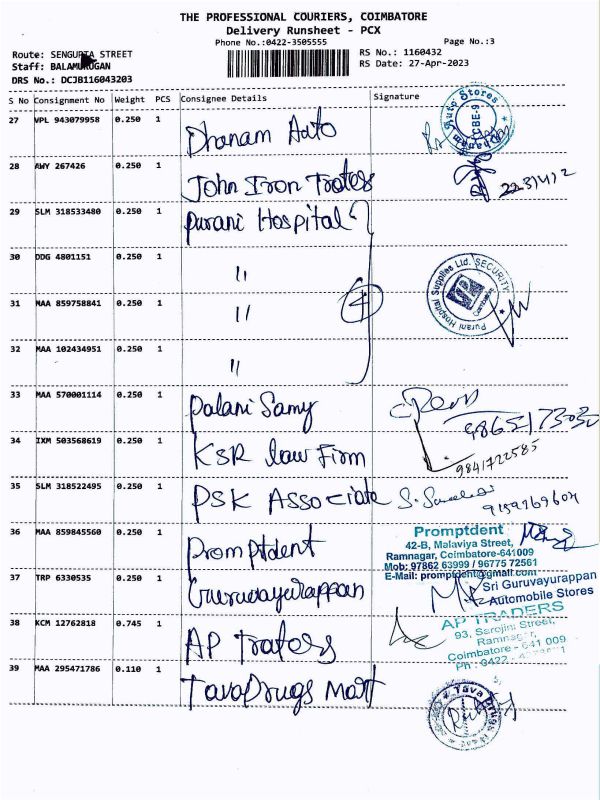 THE PROFESSIONAL COURIERS, COIMBATORE
Delivery Runsheet - PCX
Phone No.:0422-3505555 Page No.:3
Route: SENGUPTA STREET RS No.: 1160432
Staff: BALAMURUGAN RS Date: 27-Apr-2023
DRS No.: DCJB116043203
S No Consignment No Weight PCS Consignee Details Signature
27 VPL 943079958 0.250 1 Dhanam Auto
28 AWY 267426 0.250 1 John Iron Traters
29 SLM 318533480 0.250 1 Purani Hospital
30 DDG 4801151 0.250 1 "
31 MAA 859758841 0.250 1 " 4
32 MAA 102434951 0.250 1 "
Purani Hospital Supplies Ltd. SECURITY
33 MAA 570001114 0.250 1 Palani Samy
34 IXM 503568619 0.250 1 KSR law Firm 9841722585
35 SLM 318522495 0.250 1 PSK Associate
36 MAA 859845560 0.250 1 Promptdent
Promptdent
42-B, Malaviya Street,
Ramnagar, Coimbatore-641009
Mob: 97862 63999 / 96775 72561
E-Mail: promptdent@gmail.com
37 TRP 6330535 0.250 1 Guruvayurappan
Sri Guruvayurappan
Automobile Stores
38 KCM 12762818 0.745 1 AP Traters
AP TRADERS
93, Sarojini Street,
Ramnagar,
Coimbatore - 641 009
Ph : 0422 -
39 MAA 295471786 0.110 1 Tava Drugs Mart